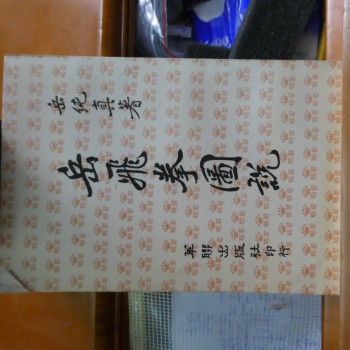 岳純真著
岳飛拳圖說
華聯出版社印行